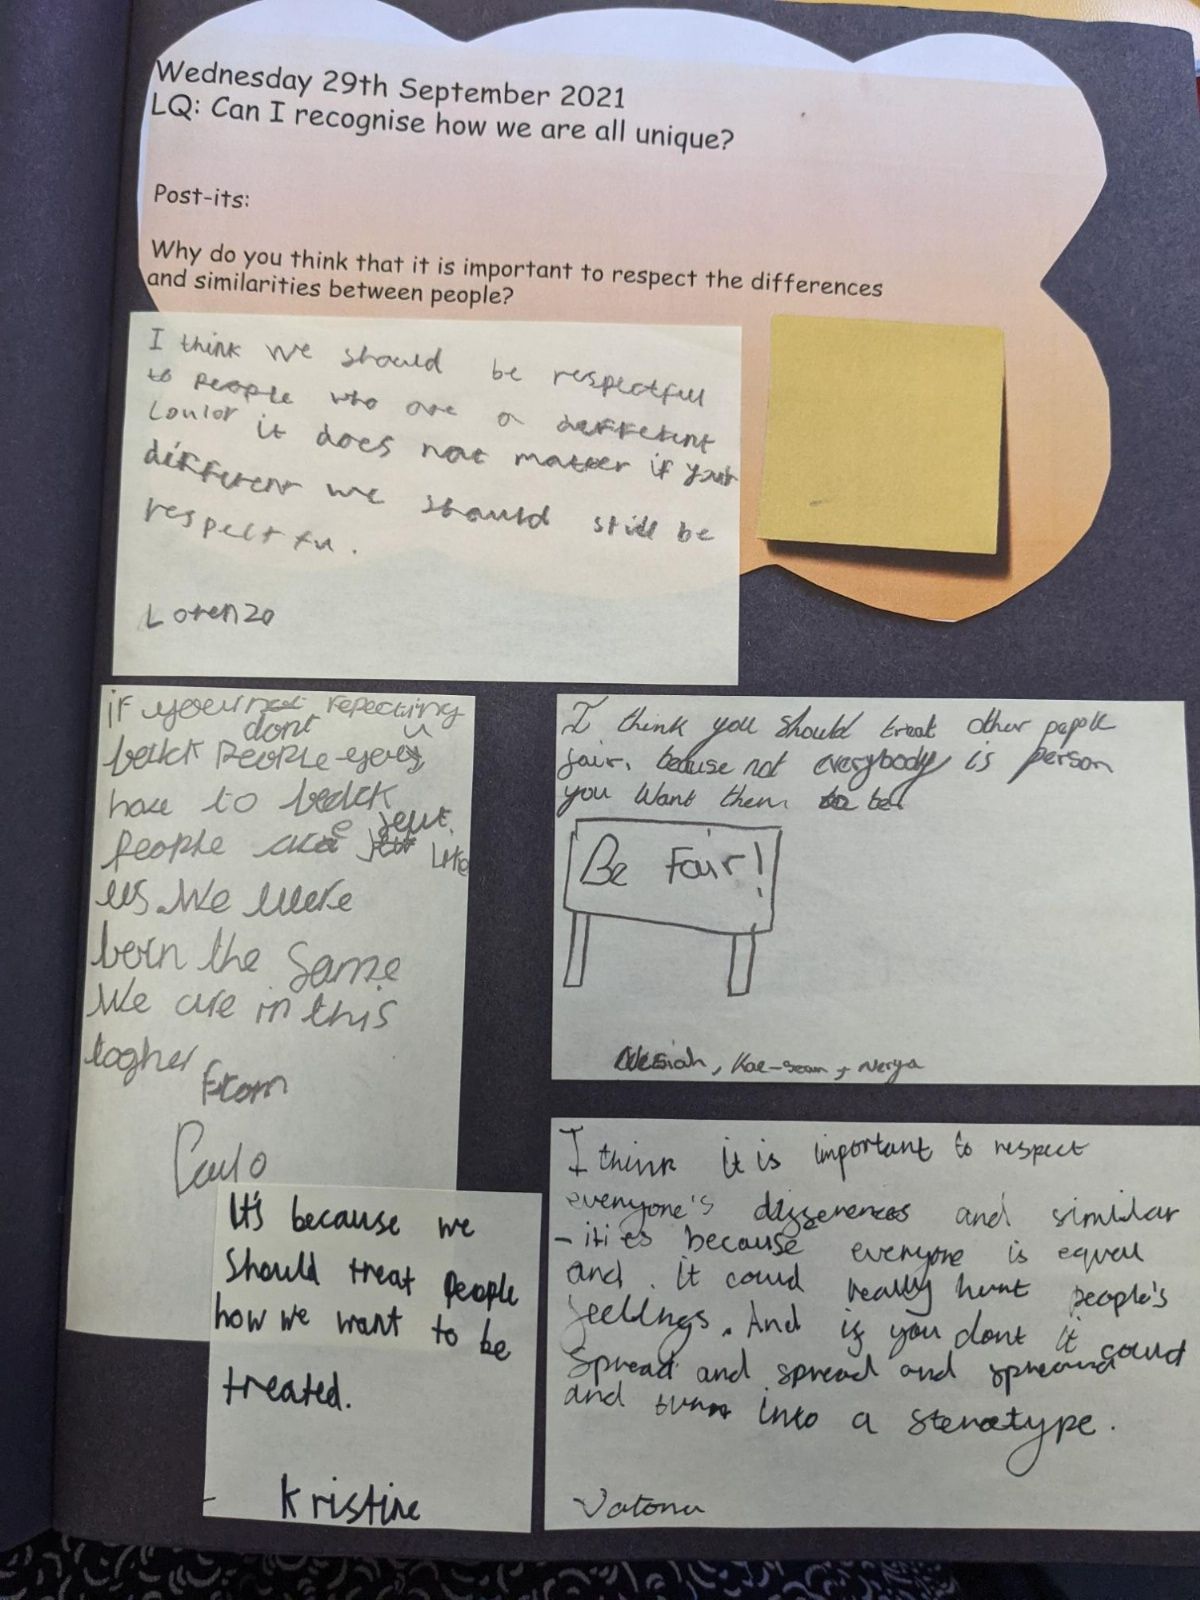 Wednesday 29th September 2021
LQ: Can I recognise how we are all unique?
Post-its:
Why do you think that it is important to respect the differences
and similarities between people?
I think we should be respectful
to people who are a different
Loulor it does not matter if your
different we should still be
respectfu.
Lorenzo
if your not repecting
dont
people
have to
people like
us. We were
born the same
We are in this
togher
From
Carlo
I think you should treat other pepole
fair, beause not everybody is person
you want them to be
Be Fair!
Kae-Sean, Nerya
It's because we
should treat people
how we want to be
treated.
- Kristine
I think it is important to respect
everyone's differences and similar
-ities because everyone is equal
and it could really hurt people's
feelings. And if you dont it could
spread and spread and spread
and turn into a stereotype.